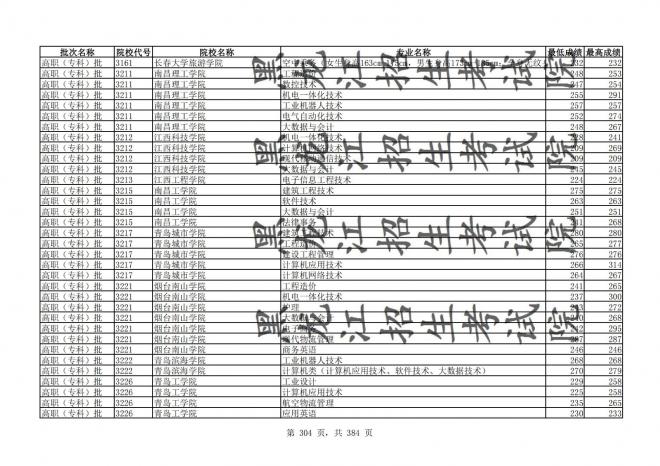 批次名称 院校代号 院校名称 专业名称 最低成绩 最高成绩
高职（专科）批 3161 长春大学旅游学院 232 232
高职（专科）批 3211 南昌理工学院 工程造价 248 253
高职（专科）批 3211 南昌理工学院 数控技术 247 254
高职（专科）批 3211 南昌理工学院 机电一体化技术 255 291
高职（专科）批 3211 南昌理工学院 工业机器人技术 257 257
高职（专科）批 3211 南昌理工学院 电气自动化技术 252 274
高职（专科）批 3211 南昌理工学院 大数据与会计 248 267
高职（专科）批 3212 江西科技学院 机电一体化技术 228 241
高职（专科）批 3212 江西科技学院 209 269
高职（专科）批 3212 江西科技学院 209 209
高职（专科）批 3212 江西科技学院 大数据与会计 245 245
高职（专科）批 3213 江西工程学院 电子信息工程技术 224 224
高职（专科）批 3215 南昌工学院 建筑工程技术 275 275
高职（专科）批 3215 南昌工学院 软件技术 263 263
高职（专科）批 3215 南昌工学院 大数据与会计 251 251
高职（专科）批 3215 南昌工学院 法律事务 268
高职（专科）批 3217 青岛城市学院 建筑工程技术 280 280
高职（专科）批 3217 青岛城市学院 工程造价 265 277
高职（专科）批 3217 青岛城市学院 建设工程管理 276 276
高职（专科）批 3217 青岛城市学院 计算机应用技术 266 314
高职（专科）批 3217 青岛城市学院 计算机网络技术 264 267
高职（专科）批 3221 烟台南山学院 工程造价 241 265
高职（专科）批 3221 烟台南山学院 机电一体化技术 237 300
高职（专科）批 3221 烟台南山学院 护理 272
高职（专科）批 3221 烟台南山学院 大数据与会计 268
高职（专科）批 3221 烟台南山学院 电子商务 295
高职（专科）批 3221 烟台南山学院 现代物流管理 287
高职（专科）批 3221 烟台南山学院 商务英语 246 246
高职（专科）批 3222 青岛滨海学院 工业机器人技术 268 268
高职（专科）批 3222 青岛滨海学院 计算机类（计算机应用技术、软件技术、大数据技术） 270 279
高职（专科）批 3226 青岛工学院 工业设计 229 258
高职（专科）批 3226 青岛工学院 计算机应用技术 225 258
高职（专科）批 3226 青岛工学院 航空物流管理 235 265
高职（专科）批 3226 青岛工学院 应用英语 230 233
黑龙江招生考试院
黑龙江招生考试院
第 304 页，共 384 页